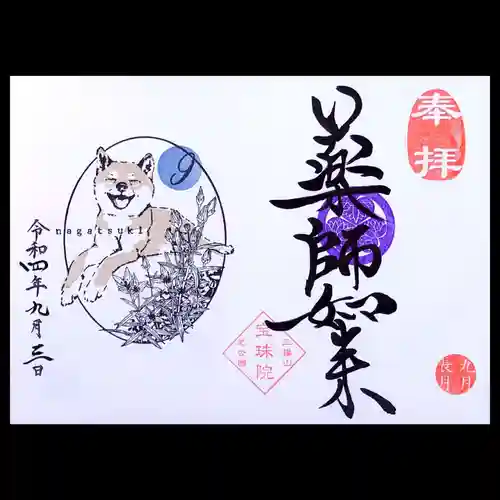 奉拝
薬師如来
九月
長月
三縁山
宝珠院
芝公園
9
nagatsuki
令和四年九月三日